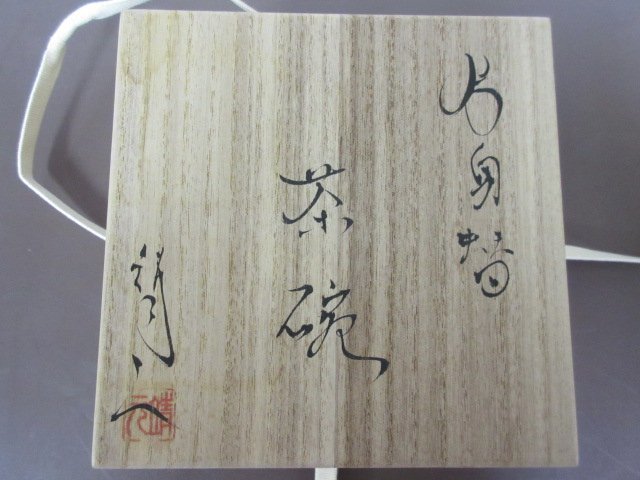 片身替
茶碗